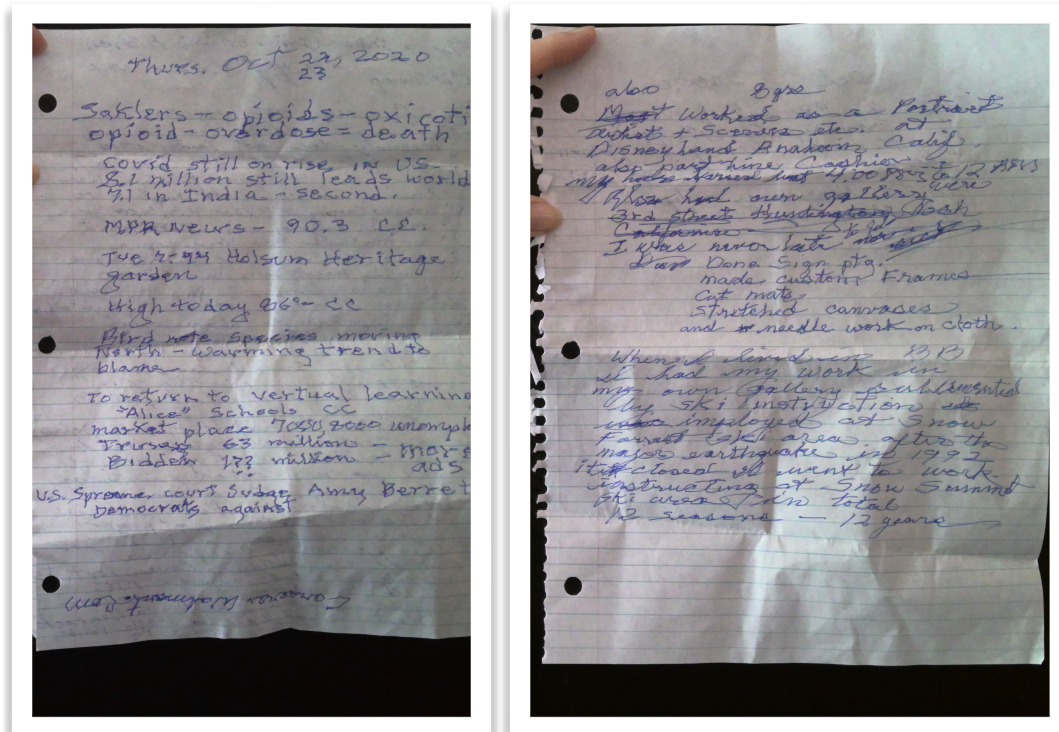 Thurs. Oct 22, 2020
23
Saklers – opioids – oxicoti
opioid – overdose = death
Covid still on rise in US.
8.1 million still leads world
7.1 in India – second.
MPR News – 90.3 CC.
Holsum Heritage
garden
High today 86° – CC
Bird note Species moving
North – warming trend to
blame
To return to vertual learning
"Alice" Schools CC
market place 
63 million – more
Bidden 1?? million – ads
U.S. Spreame court Judge Amy Berret
Democrats against
also 8 yrs
Most worked as a Portrait
Artist + Scenics etc. at
Disneyland Anaheim Calif.
also part time Cashier
my
Also had own gallery were
3rd street Huntington Bch
California
I was never late
Done Sign ptg.
made custom Frames
Cut mats
Stretched canvases
and needle work on cloth.
When I lived in BB
I had my work in
my own Gallery
my ski instruction
employed at Snow
Forrest ski area. after the
major earthquake in 1992
it closed I went to work
instructing at Snow Summit
ski area in total
12 seasons – 12 years